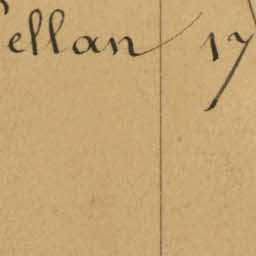 ellan 17